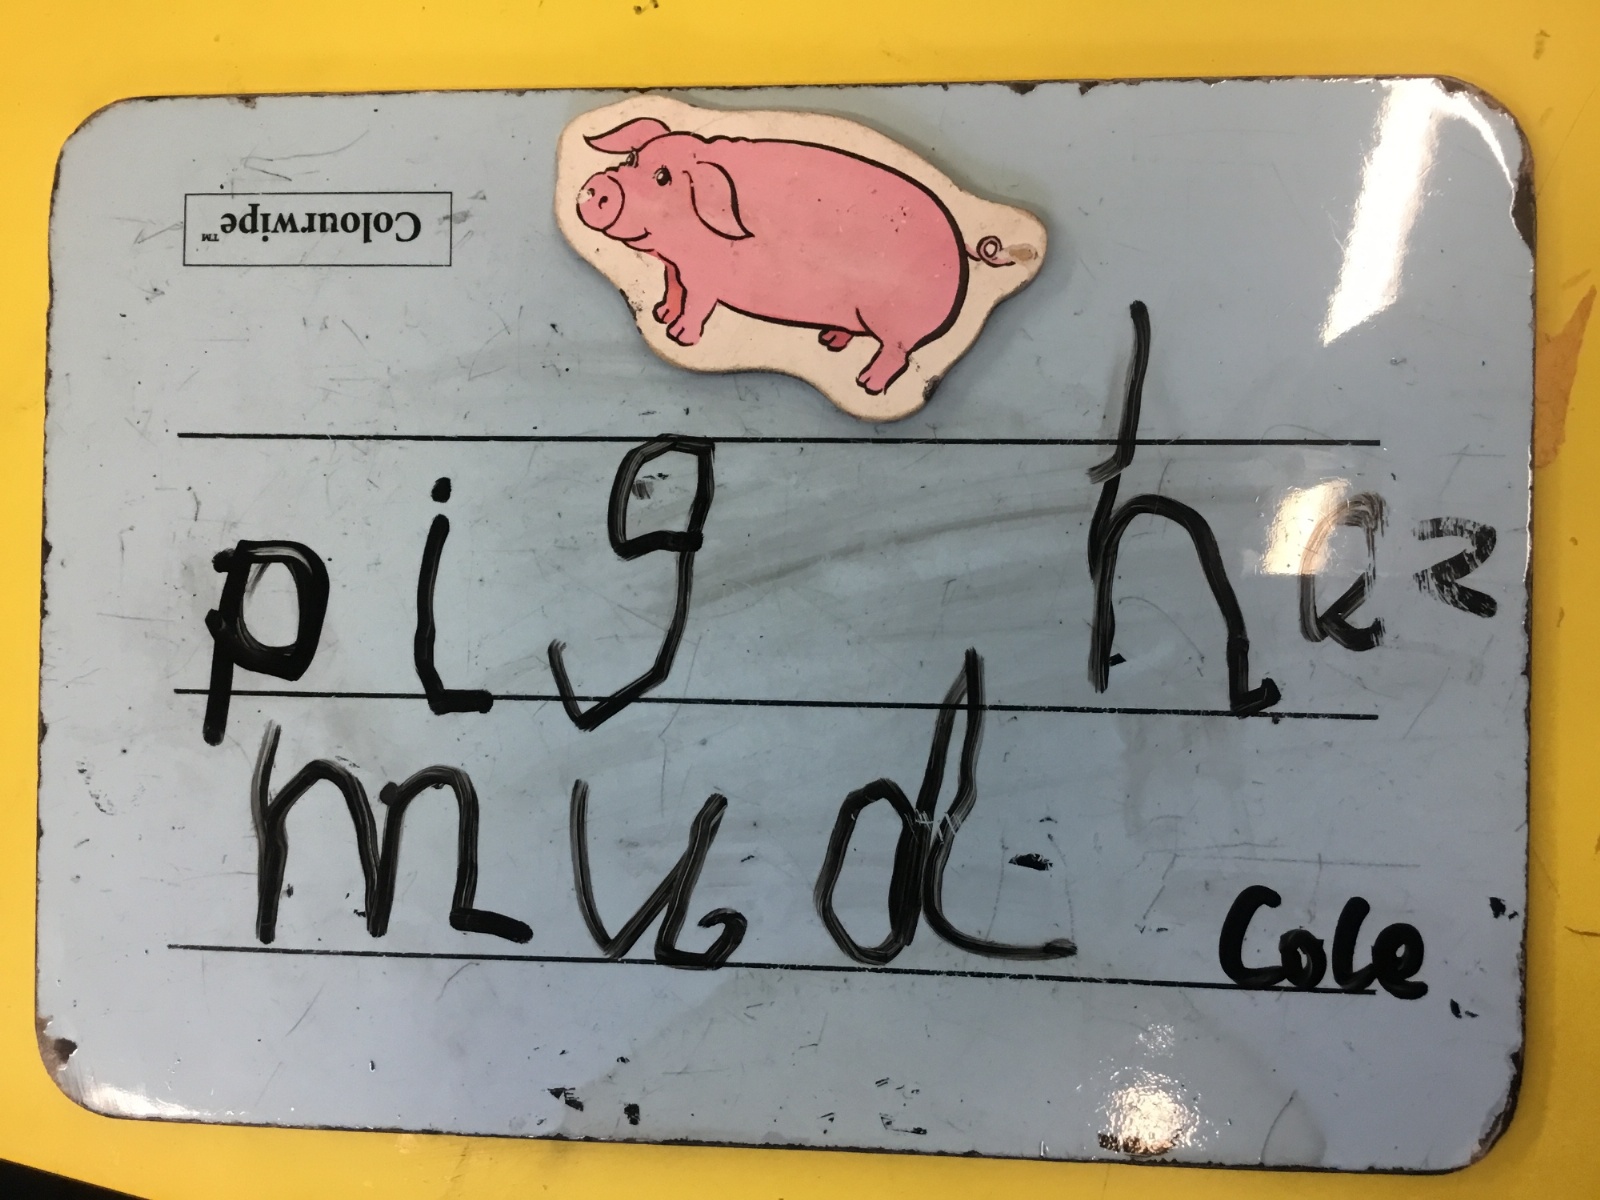 Colourwipe™
pig haz
mud
Cole